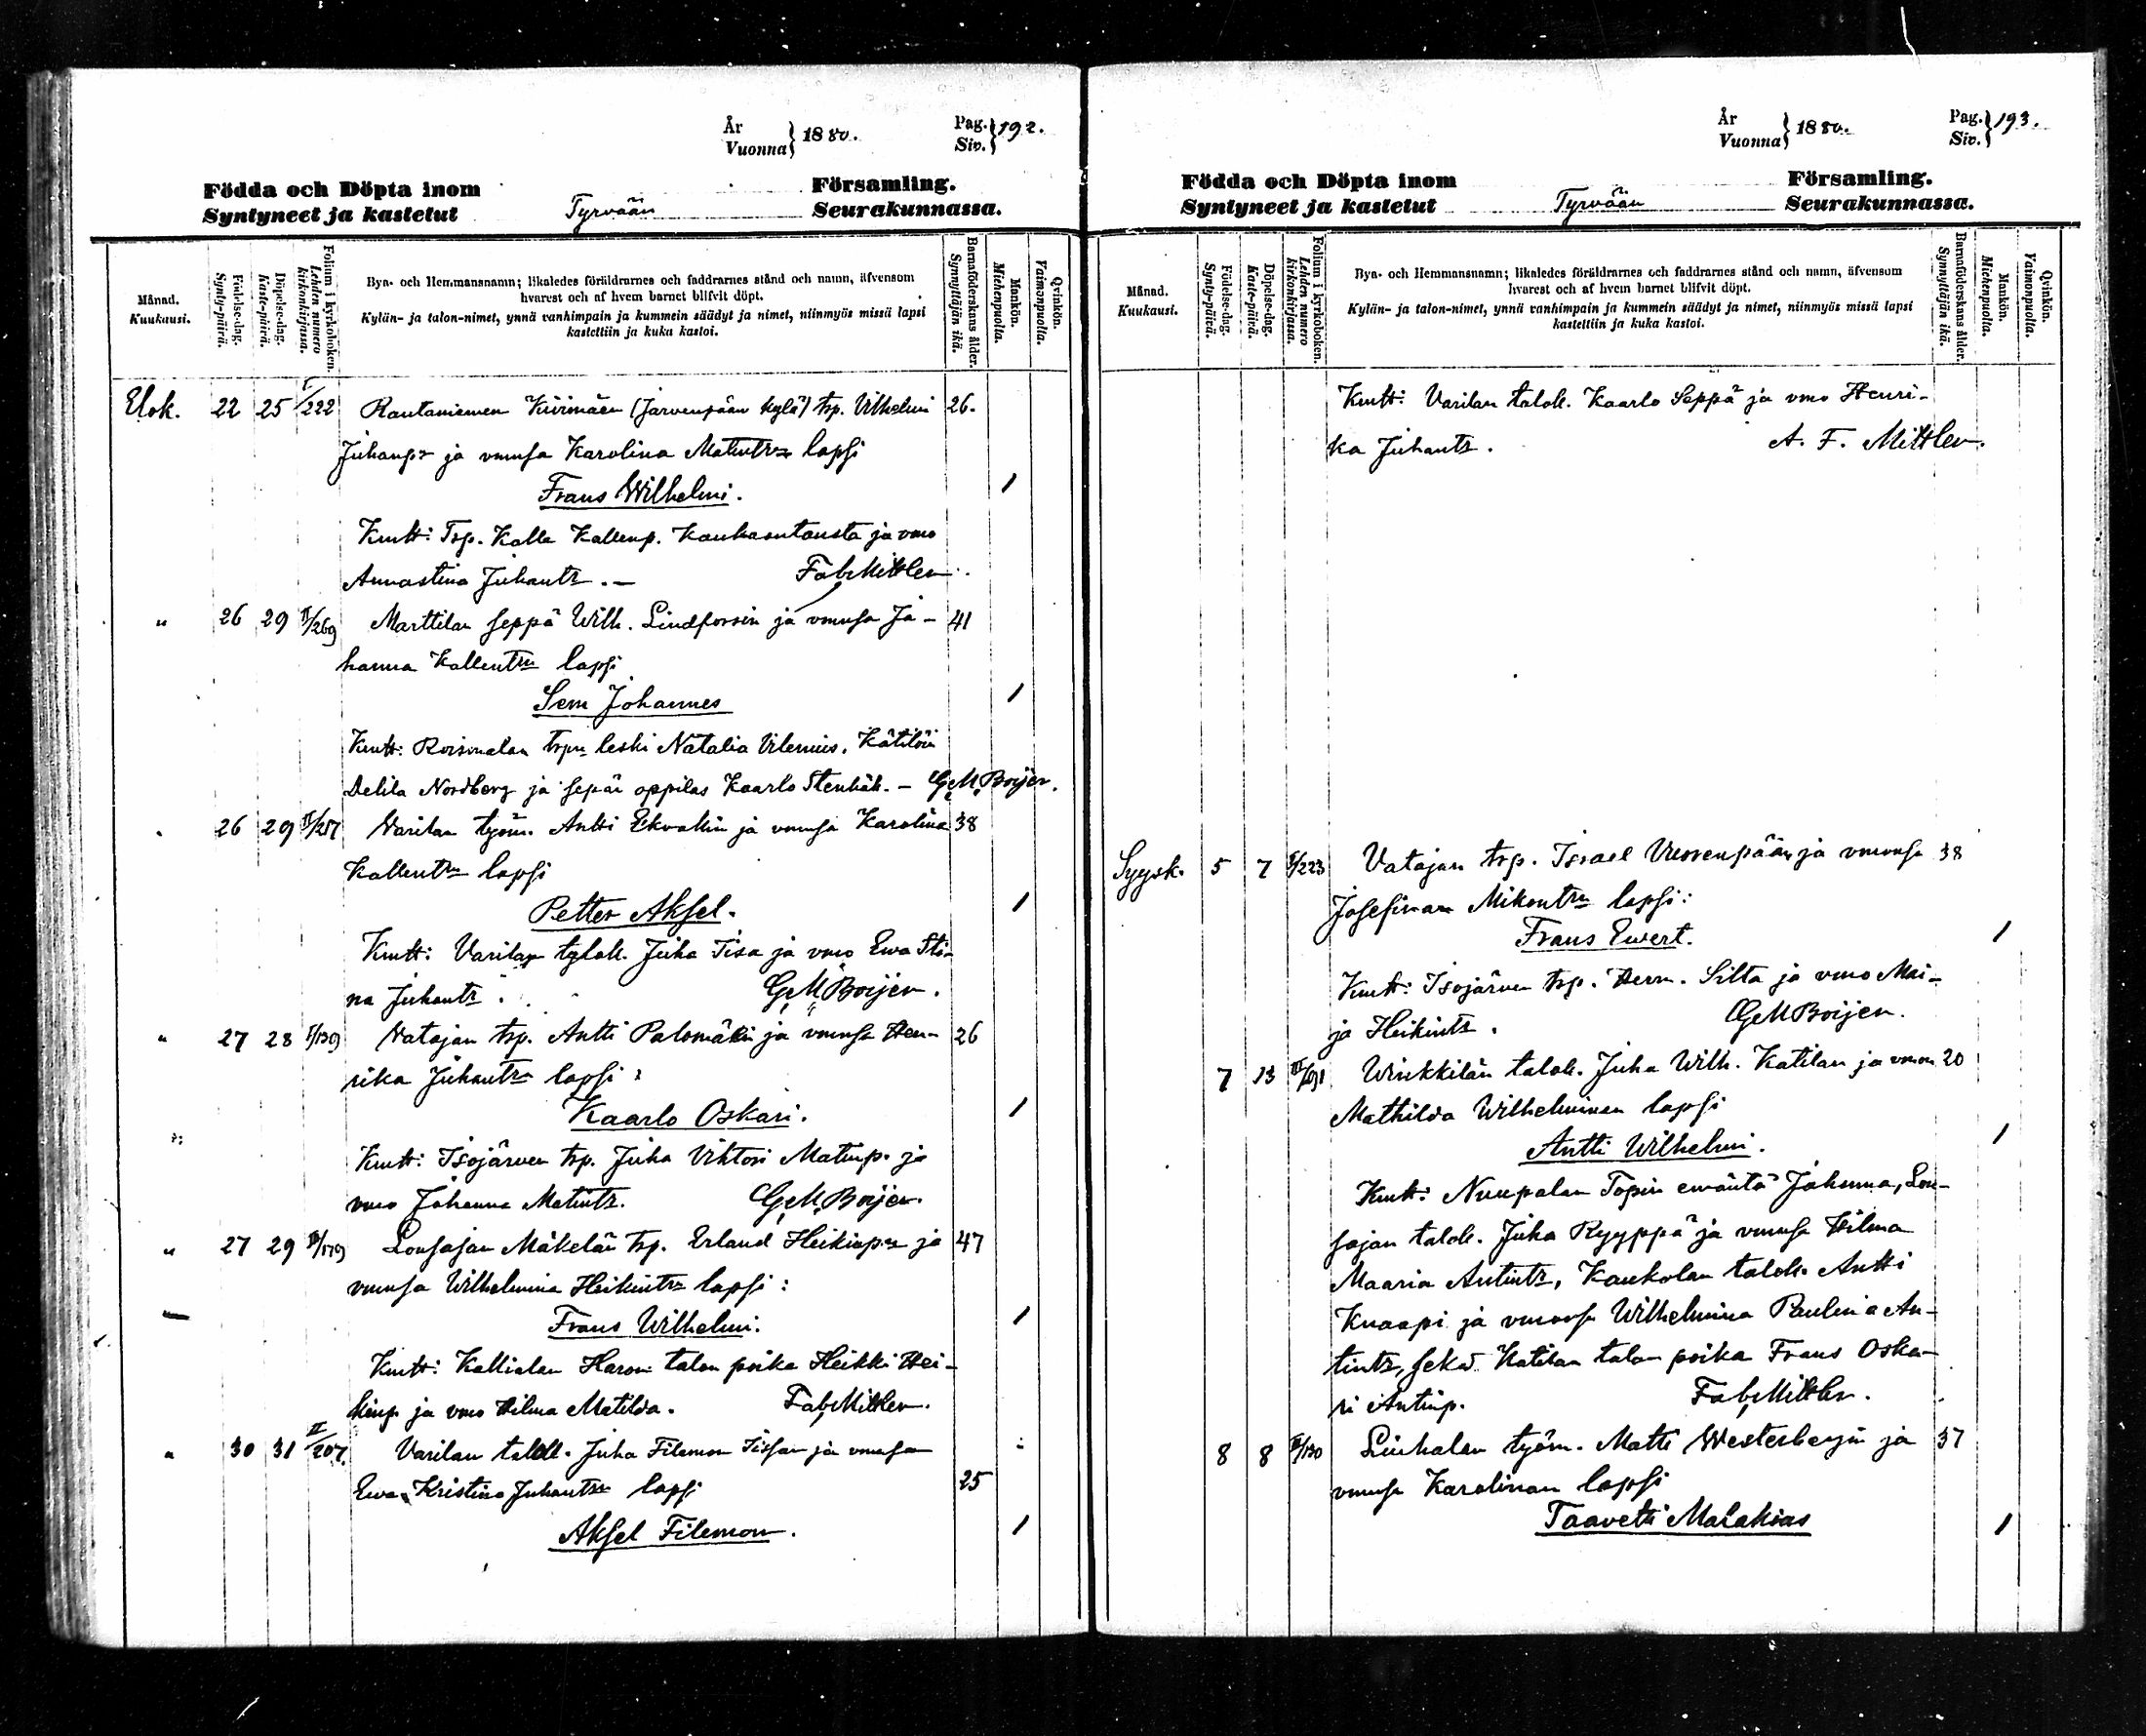 År
Vuonna } 1880.
Pag.
Siv. } 192.
Födda och Döpta inom Församling.
Syntyneet ja kastetut Tyrvään Seurakunnassa.
Månad.
Kuukausi.
Födelse-dag.
Synty-päivä.
Döpelse-dag.
Kaste-päivä.
Folium i kyrkoboken.
Lehden numero
kirkonkirjassa.
Bya- och Hemmansnamn; likaledes föräldrarnes och faddrarnes stånd och namn, äfvensom
hvarest och af hvem barnet blifvit döpt.
Kylän- ja talon-nimet, ynnä vanhimpain ja kummein säädyt ja nimet, niinmyös missä lapsi
kastettiin ja kuka kastoi.
Barnaföderskans ålder.
Synnyttäjän ikä.
Mankön.
Miehenpuolta.
Qvinkön.
Vaimonpuolta.
Elok. 22 25 I/222 Rautaniemen (Järvenpään kylä) trp. Vilhelmi 26.
Juhanp ja vmnsa Karolina Matintr lapsi
Frans Wilhelmi. /
Kmtt: Trp. Kalle Kallenp. Kaukaantausta ja vmo
Annastina Juhantr. — Fab. Mittler.
" 26 29 II/269 Marttilan seppä Wilh. Lindforsin ja vmnsa Jo- 41
hanna Kallentrn lapsi
Sem Johannes /
Kmtt: Roismalan trpn leski Natalia Vilenius, Kätilön
Delila Nordberg ja sepän oppilas Kaarlo — G. M. Boijer.
" 26 29 Varilan työm. Antti Ekvallin ja vmnsa Karolina 38
Kallentrn lapsi
Petter Aksel. /
Kmtt: Varilan tylol. Juha Iisa ja vmo Ewa Sti-
na Juhantr. G. M. Boijer.
" 27 28 I/139 Vatajan trp. Antti Palomäkin ja vmnsa Hen- 26
rika Juhantrn lapsi:
Kaarlo Oskari. /
Kmtt: Isojärven trp. Juha Vihtori Matinp. ja
vmo Johanna Matintr. G. M. Boijer.
" 27 29 Lousajan Mäkelän trp. Erland Heikinpn ja 47
vmnsa Wilhelmina Heikintrn lapsi:
Frans Wilhelmi. /
Kmtt: Kallialan Haron talon poika Heikki Hei-
kinp. ja vmo Hilma Matilda. Fab. Mittler.
" 30 31 II/207. Varilan talok. Juha Filemon Iissan ja vmnsan
Ewa Kristina Juhantrn lapsi 25
Aksel Filemon. /
År
Vuonna } 1880.
Pag.
Siv. } 193.
Födda och Döpta inom Församling.
Syntyneet ja kastetut Tyrvään Seurakunnassa.
Månad.
Kuukausi.
Födelse-dag.
Synty-päivä.
Döpelse-dag.
Kaste-päivä.
Folium i kyrkoboken.
Lehden numero
kirkonkirjassa.
Bya- och Hemmansnamn; likaledes föräldrarnes och faddrarnes stånd och namn, äfvensom
hvarest och af hvem barnet blifvit döpt.
Kylän- ja talon-nimet, ynnä vanhimpain ja kummein säädyt ja nimet, niinmyös missä lapsi
kastettiin ja kuka kastoi.
Barnaföderskans ålder.
Synnyttäjän ikä.
Mankön.
Miehenpuolta.
Qvinkön.
Vaimonpuolta.
Kmtt: Varilan talok. Kaarlo Seppä ja vmo Henri-
ka Juhantr. A. F. Mittler.
Syysk. 5 7 I/223 Vatajan trp. Israel Vuorenpään ja vmonsa 38
Josefinan Mikontrn lapsi:
Frans Ewert. /
Kmtt: Isojärven trp. Herm. Silta ja vmo Mai-
ja Heikintr. G. M. Boijer.
7 13 Winkkilän talok. Juha Wilh. Katilan ja vmon 20
Mathilda Wilhelminan lapsi
Antti Wilhelmi. /
Kmtt: Nuupalan Topin emäntä Johanna, Lou-
sajan talok. Juha Ryyppä ja vmnsa Hilma
Maaria Antintr, Kaukolan talok. Antti
Knaapi ja vmonsa Wilhelmina Paulina An-
tintr, sekä Katilan talon poika Frans Oska-
ri Antinp. Fab. Mittler.
8 8 Liuhalan työm. Matti Westerbergin ja 37
vmnsa Karolinan lapsi
Taavetti Malakias /